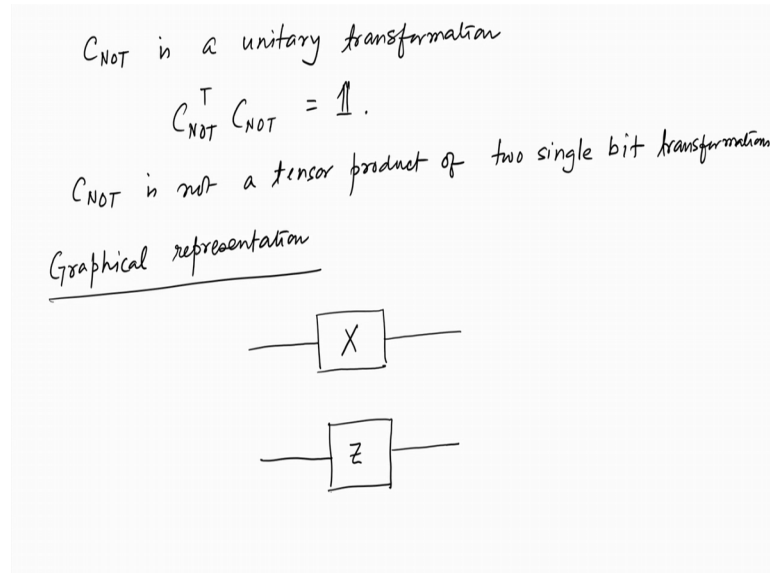 C_NOT is a unitary transformation
C_NOT^T C_NOT = 𝟙.
C_NOT is not a tensor product of two single bit transformations
Graphical representation
X
Z